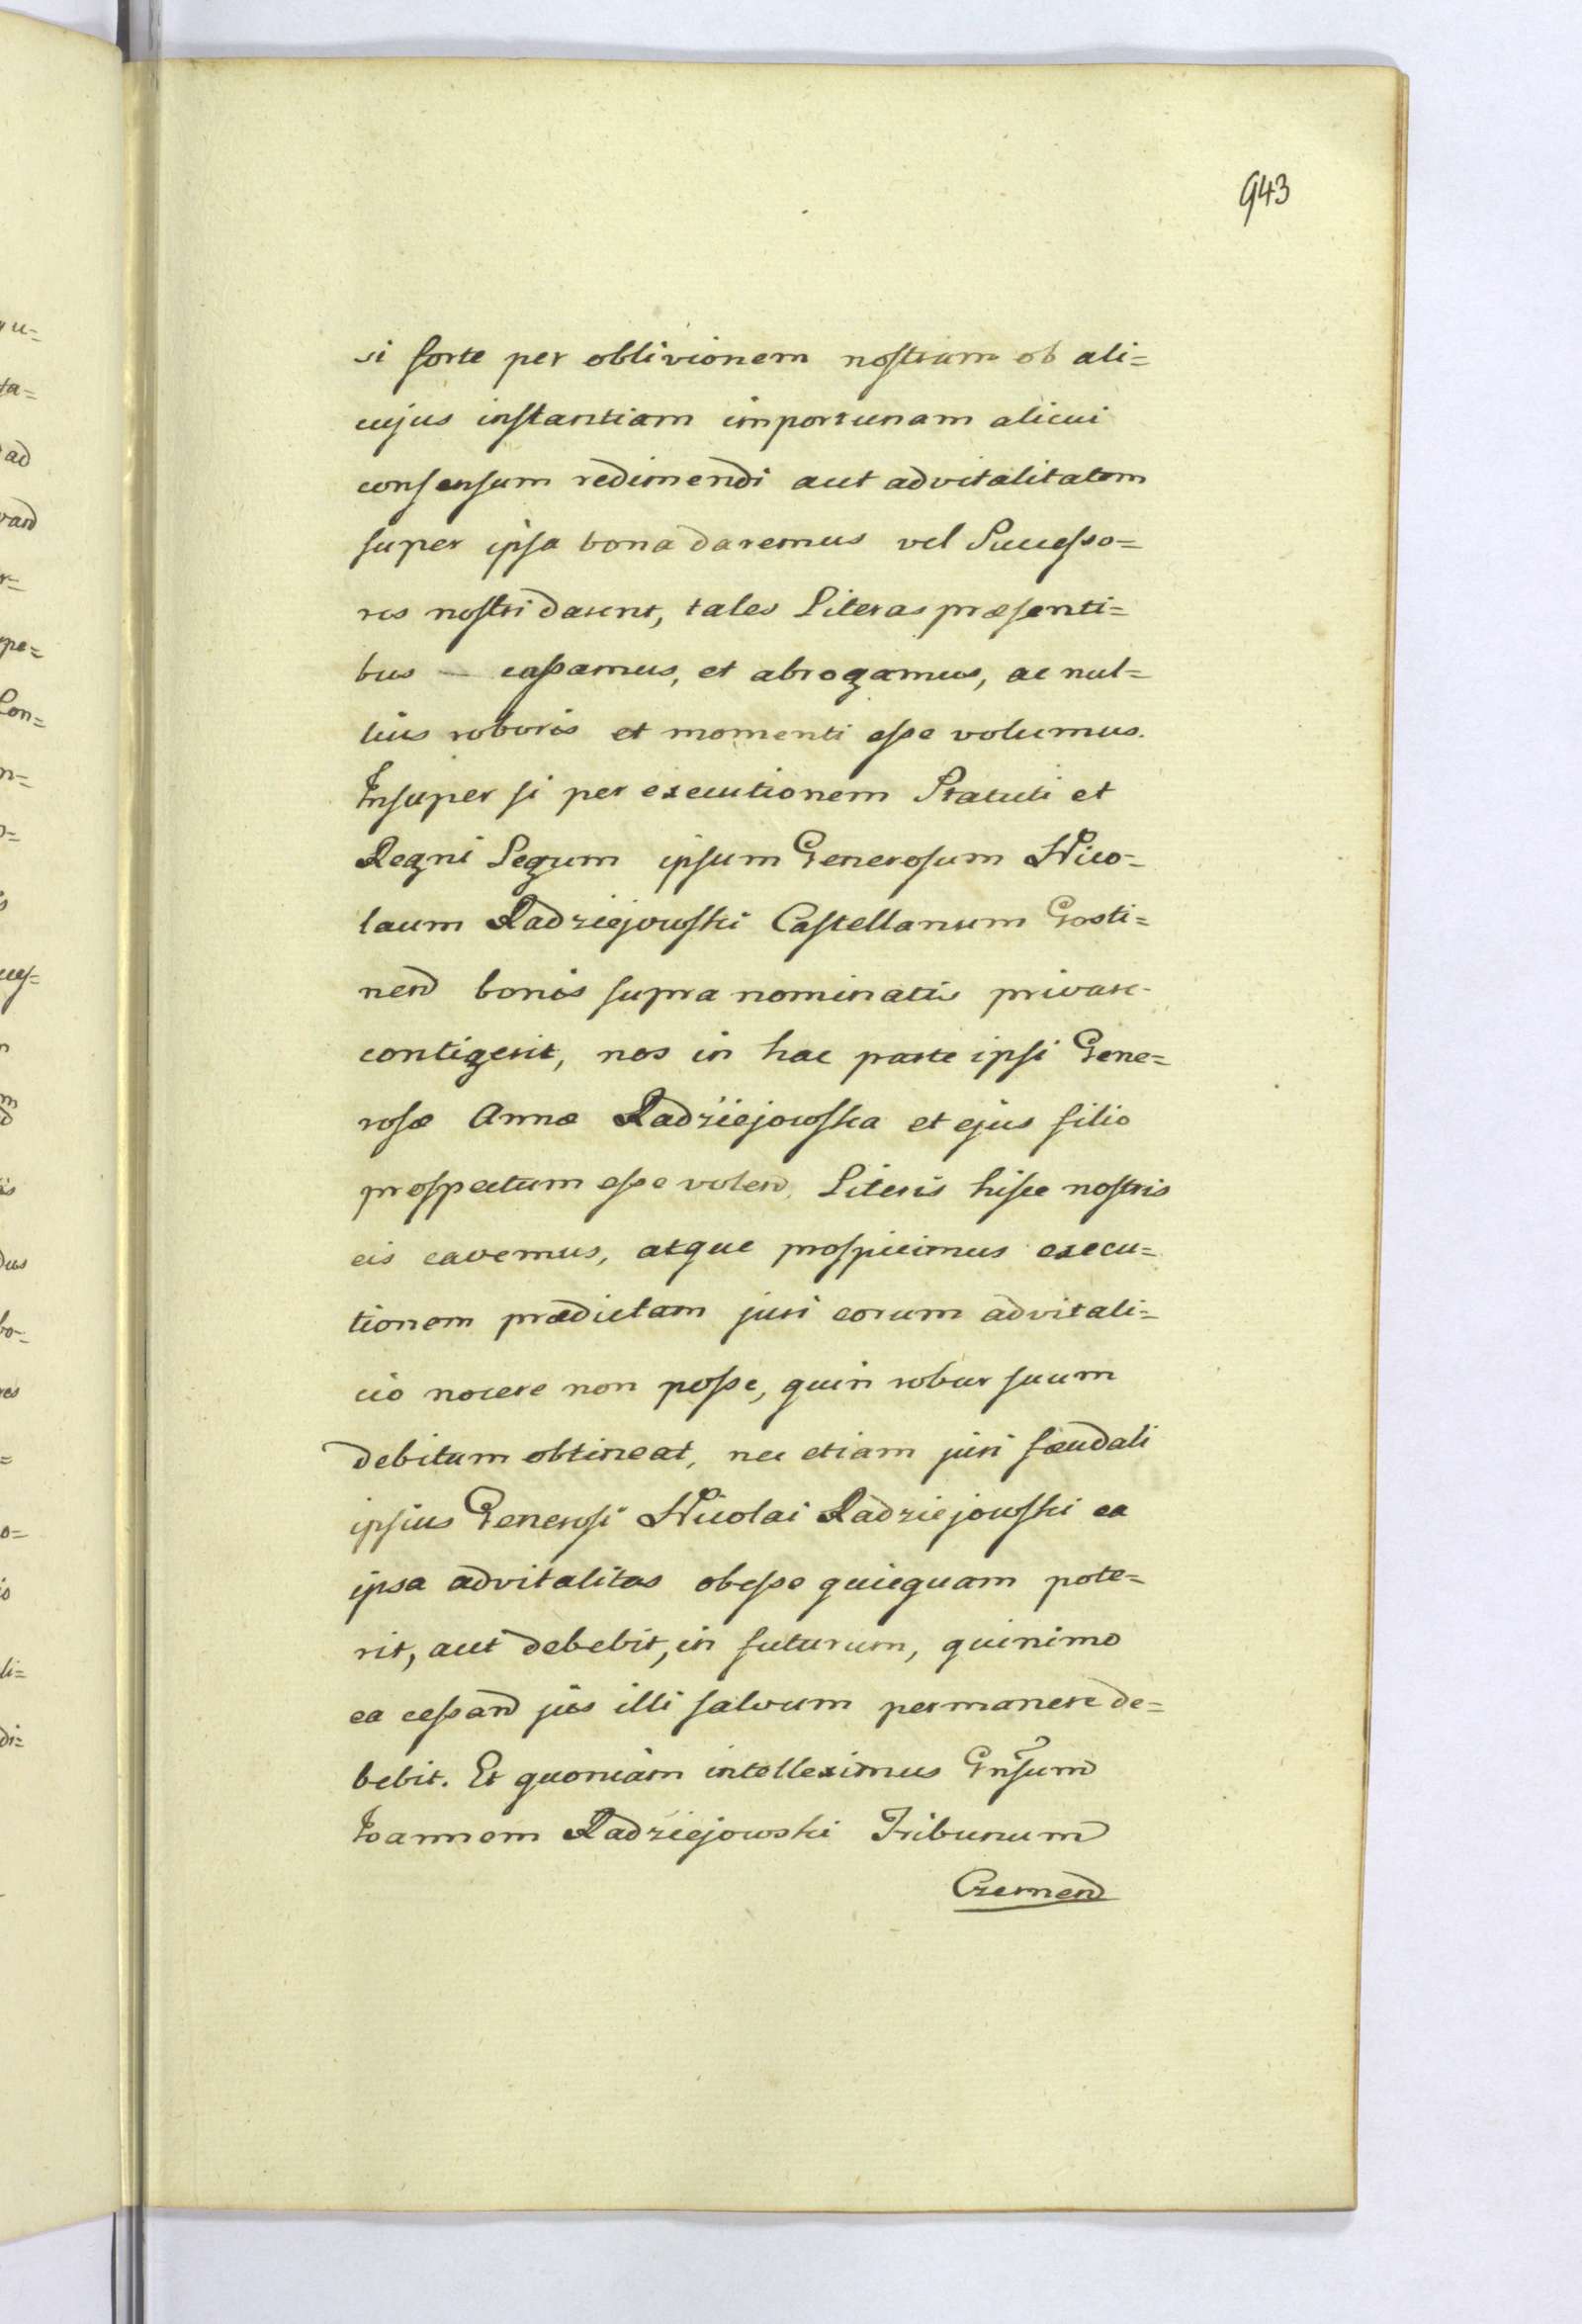 943
si forte per oblivionem nostram ob ali=
cujus instantiam importunam alicui
consensum redimendi aut advitalitatem
super ipsa bona daremus vel Successo=
res nostri darent, tales Literas præsenti=
bus — cassamus, et abrogamus, ac nul=
lius roboris et momenti esse volumus.
Insuper si per executionem Statuti et
Regni Legum ipsum Generosum Nico=
laum Radziejowski Castellanum Gosti=
nen bonis supra nominatis privare
contigerit, nos in hac parte ipsi Gene=
rosæ Annæ Radziejowska et ejus filio
prospectum esse volen, Literis hisce nostris
eis cavemus, atque prospicimus execu=
tionem prædictam juri eorum advitali=
cio nocere non posse, quin robur suum
debitum obtineat, nec etiam juri fœudali
ipsius Generosi Nicolai Radziejowski ea
ipsa advitalitas obesse quicquam pote=
rit, aut debebit, in futurum, quinimo
ea cessan jus illi salvum permanere de=
bebit. Et quoniam intelleximus Gnsum
Joannem Radziejowski Tribunum
Czernen
gu=
ta=
ad
van
r=
pe=
Con=
n=
o=
is
ces=
n
m
is
dus
bo=
res
=
o=
io
li=
di=